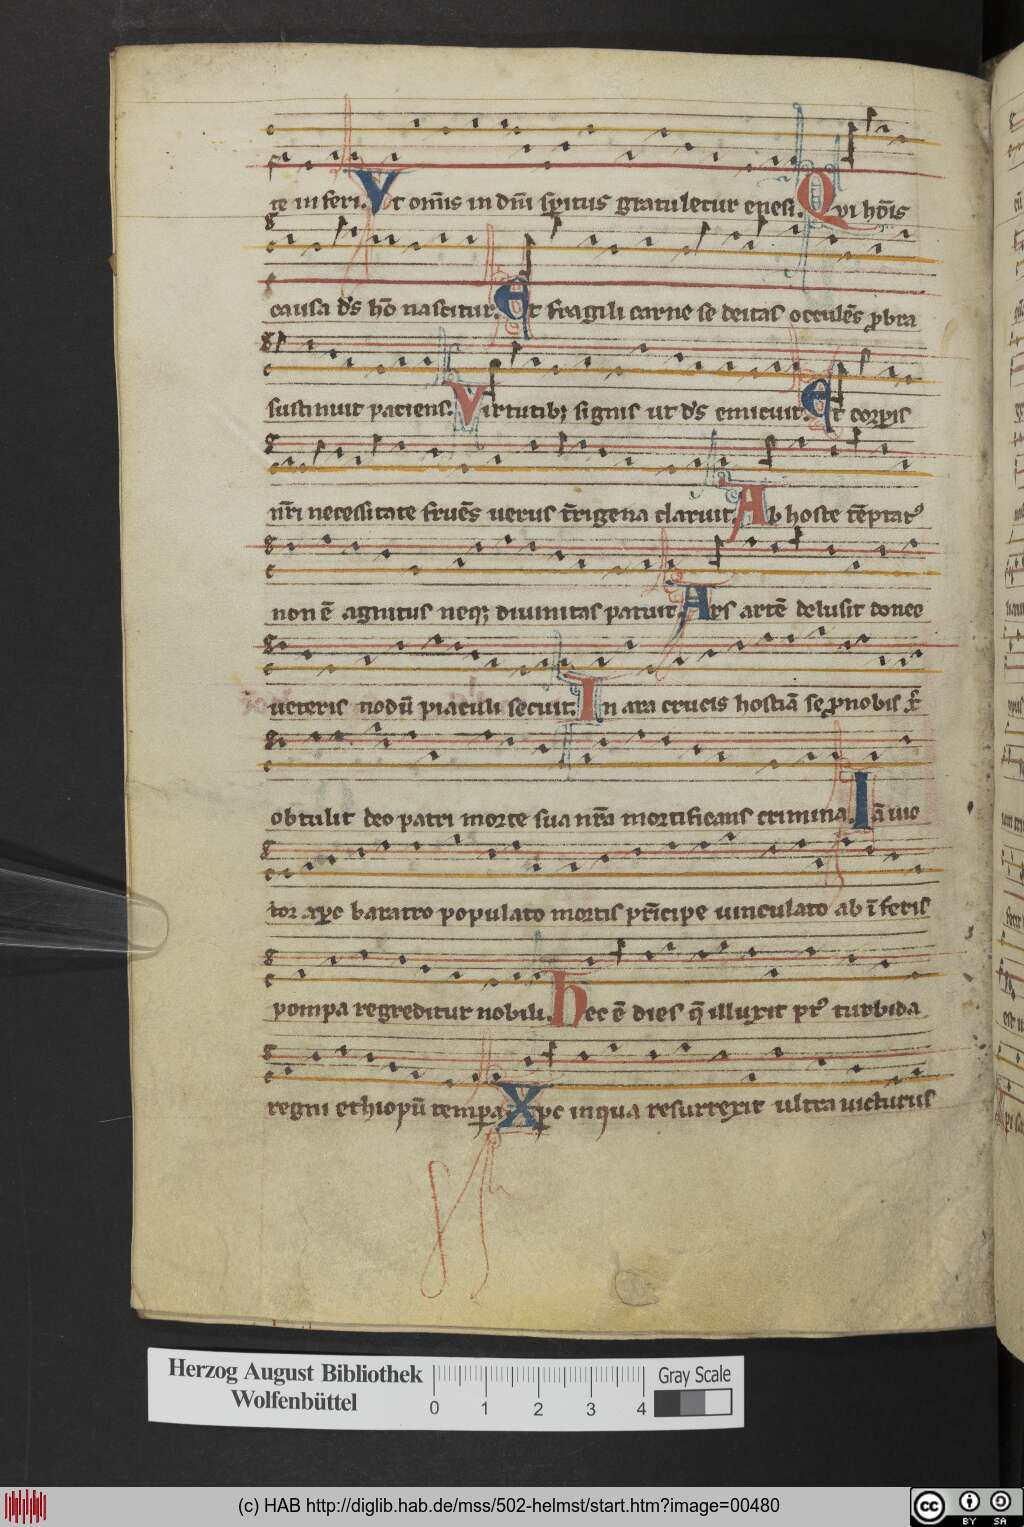 te inferi. Vt om̄is in dn̄i sp̄ritus gratuletur enesi. Qui ho̅is
causa d's ho̅ nascitur. Et fragili carne se deitas occule̅s p̱bra
sustinuit patiens. Virtutibꝫ signis ut d's emicuit. Et corꝑis
nr̄i necessitate frue̅s uerus t̅rigena claruit. Ab hoste te̅ptatꝰ
non e̅ agnitus neqꝫ diuinitas patuit. Ars arte̅ delusit donec
ueteris nodu̅ piaculi secuit. In ara crucis hostia̅ se ꝓ nobis xp̄c
obtulit deo patri morte sua nr̄a mortificans crimina. Ia̅ uic
tor xp̄c baratro populato mortis pri̅cipe uinculato ab i̅feris
pompa regreditur nobili. Hec e̅ dies qe̅ illuxit pꝰ turbida
regni ethiopu̅ tempa. Xp̄c in qua resurrexit ultra uicturus
Herzog August Bibliothek
Wolfenbüttel
0 1 2 3 4
Gray Scale
(c) HAB http://diglib.hab.de/mss/502-helmst/start.htm?image=00480
cc BY SA